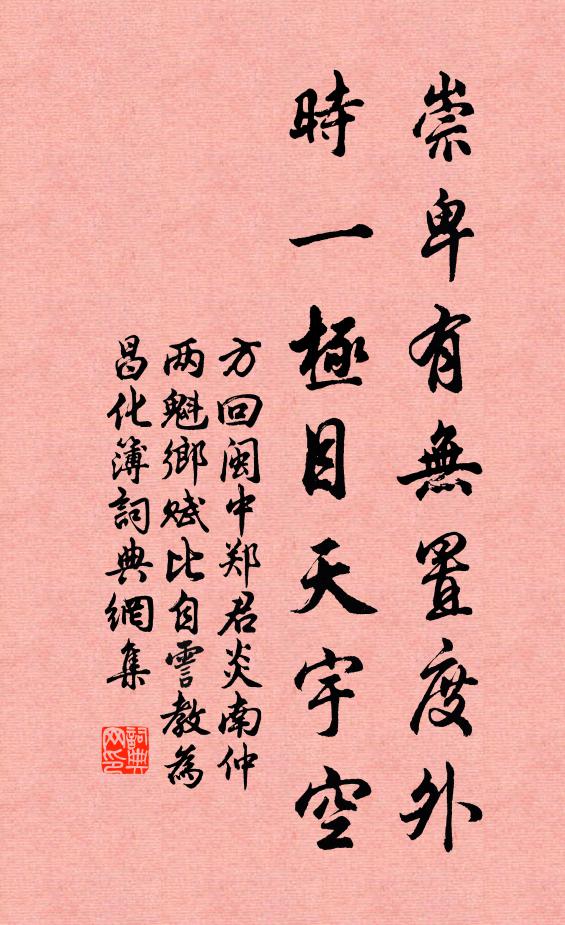 崇卑有無置度外
時一極目天宇空
方回闽中郑君炎南仲
两魁鄉赋比自雲教為
昌化簿詞典網集
詞典
网印